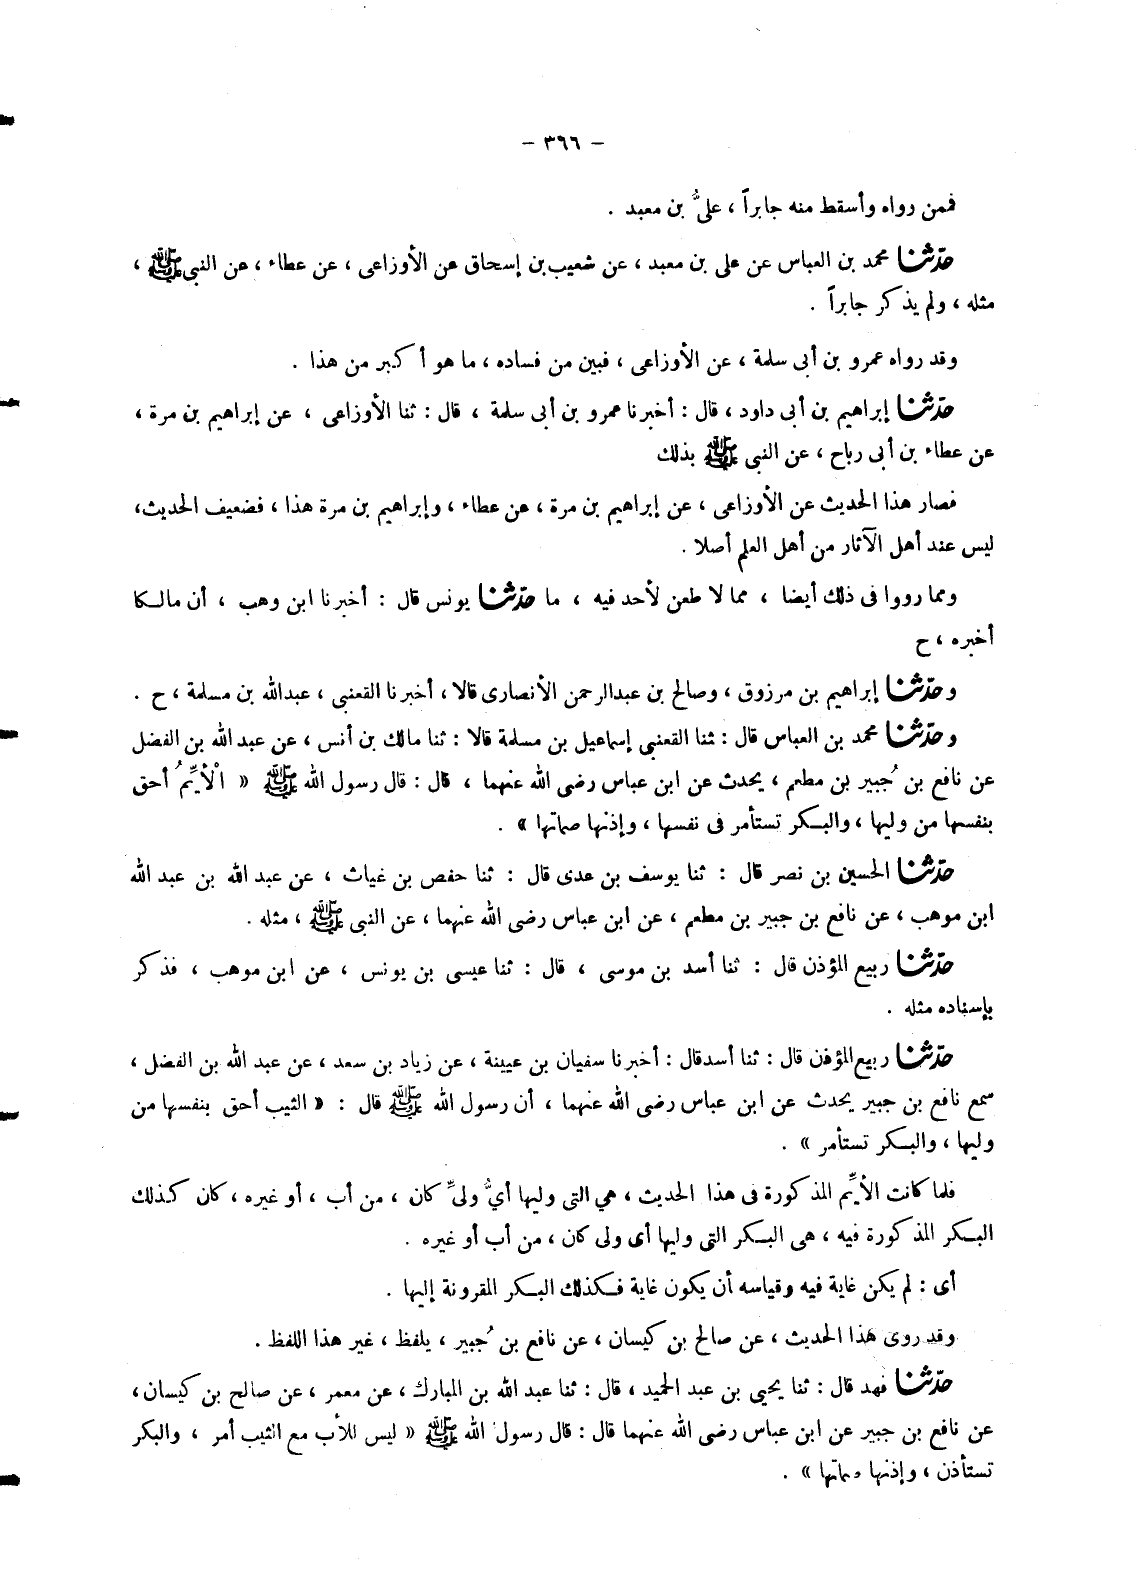 - ٣٦٦ -
فمن رواه وأسقط منه جابراً ، علىُّ بن معبد .
حدّثنا محمد بن العباس عن على بن معبد ، عن شعيب بن إسحاق عن الأوزاعى ، عن عطاء ، عن النبى ﷺ ،
مثله ، ولم يذكر جابراً .
وقد رواه عمرو بن أبى سلمة ، عن الأوزاعى ، فبين من فساده ، ما هو أكبر من هذا .
حدّثنا إبراهيم بن أبى داود ، قال : أخبرنا عمرو بن أبى سلمة ، قال : ثنا الأوزاعى ، عن إبراهيم بن مرة ،
عن عطاء بن أبى رباح ، عن النبى ﷺ بذلك
فصار هذا الحديث عن الأوزاعى ، عن إبراهيم بن مرة ، عن عطاء ، وإبراهيم بن مرة هذا ، فضعيف الحديث ،
ليس عند أهل الآثار من أهل العلم أصلا .
ومما رووا فى ذلك أيضا ، مما لا طعن لأحد فيه ، ما حدّثنا يونس قال : أخبرنا ابن وهب ، أن مالكا
أخبره ، ح
وحدّثنا إبراهيم بن مرزوق ، وصالح بن عبدالرحمن الأنصارى قالا ، أخبرنا القعنبى ، عبدالله بن مسلمة ، ح .
وحدّثنا محمد بن العباس قال : ثنا القعنبى إسماعيل بن مسلمة قالا : ثنا مالك بن أنس ، عن عبد الله بن الفضل
عن نافع بن جُبير بن مطعم ، يحدث عن ابن عباس رضى الله عنهما ، قال : قال رسول الله ﷺ « الْأَيِّمُ أحق
بنفسها من وليها ، والبكر تستأمر فى نفسها ، وإذنها صماتها » .
حدّثنا الحسين بن نصر قال : ثنا يوسف بن عدى قال : ثنا حفص بن غياث ، عن عبد الله بن عبد الله
ابن موهب ، عن نافع بن جبير بن مطعم ، عن ابن عباس رضى الله عنهما ، عن النبى ﷺ ، مثله .
حدّثنا ربيع المؤذن قال : ثنا أسد بن موسى ، قال : ثنا عيسى بن يونس ، عن ابن موهب ، فذكر
بإسناده مثله .
حدّثنا ربيع المؤذن قال : ثنا أسد قال : أخبرنا سفيان بن عيينة ، عن زياد بن سعد ، عن عبد الله بن الفضل ،
سمع نافع بن جبير يحدث عن ابن عباس رضى الله عنهما ، أن رسول الله ﷺ قال : « الثيب أحق بنفسها من
وليها ، والبكر تستأمر » .
فلما كانت الأيِّم المذكورة فى هذا الحديث ، هي التى وليها أيُّ ولىٍّ كان ، من أب ، أو غيره ، كان كذلك
البكر المذكورة فيه ، هى البكر التى وليها أى ولى كان ، من أب أو غيره .
أى : لم يكن غاية فيه وقياسه أن يكون غاية فكذلك البكر المقرونة إليها .
وقد روى هذا الحديث ، عن صالح بن كيسان ، عن نافع بن جُبير ، يلفظ ، غير هذا اللفظ .
حدّثنا فهد قال : ثنا يحيى بن عبد الحميد ، قال : ثنا عبد الله بن المبارك ، عن معمر ، عن صالح بن كيسان ،
عن نافع بن جبير عن ابن عباس رضى الله عنهما قال : قال رسول الله ﷺ « ليس للأب مع الثيب أمر ، والبكر
تستأذن ، وإذنها صماتها » .